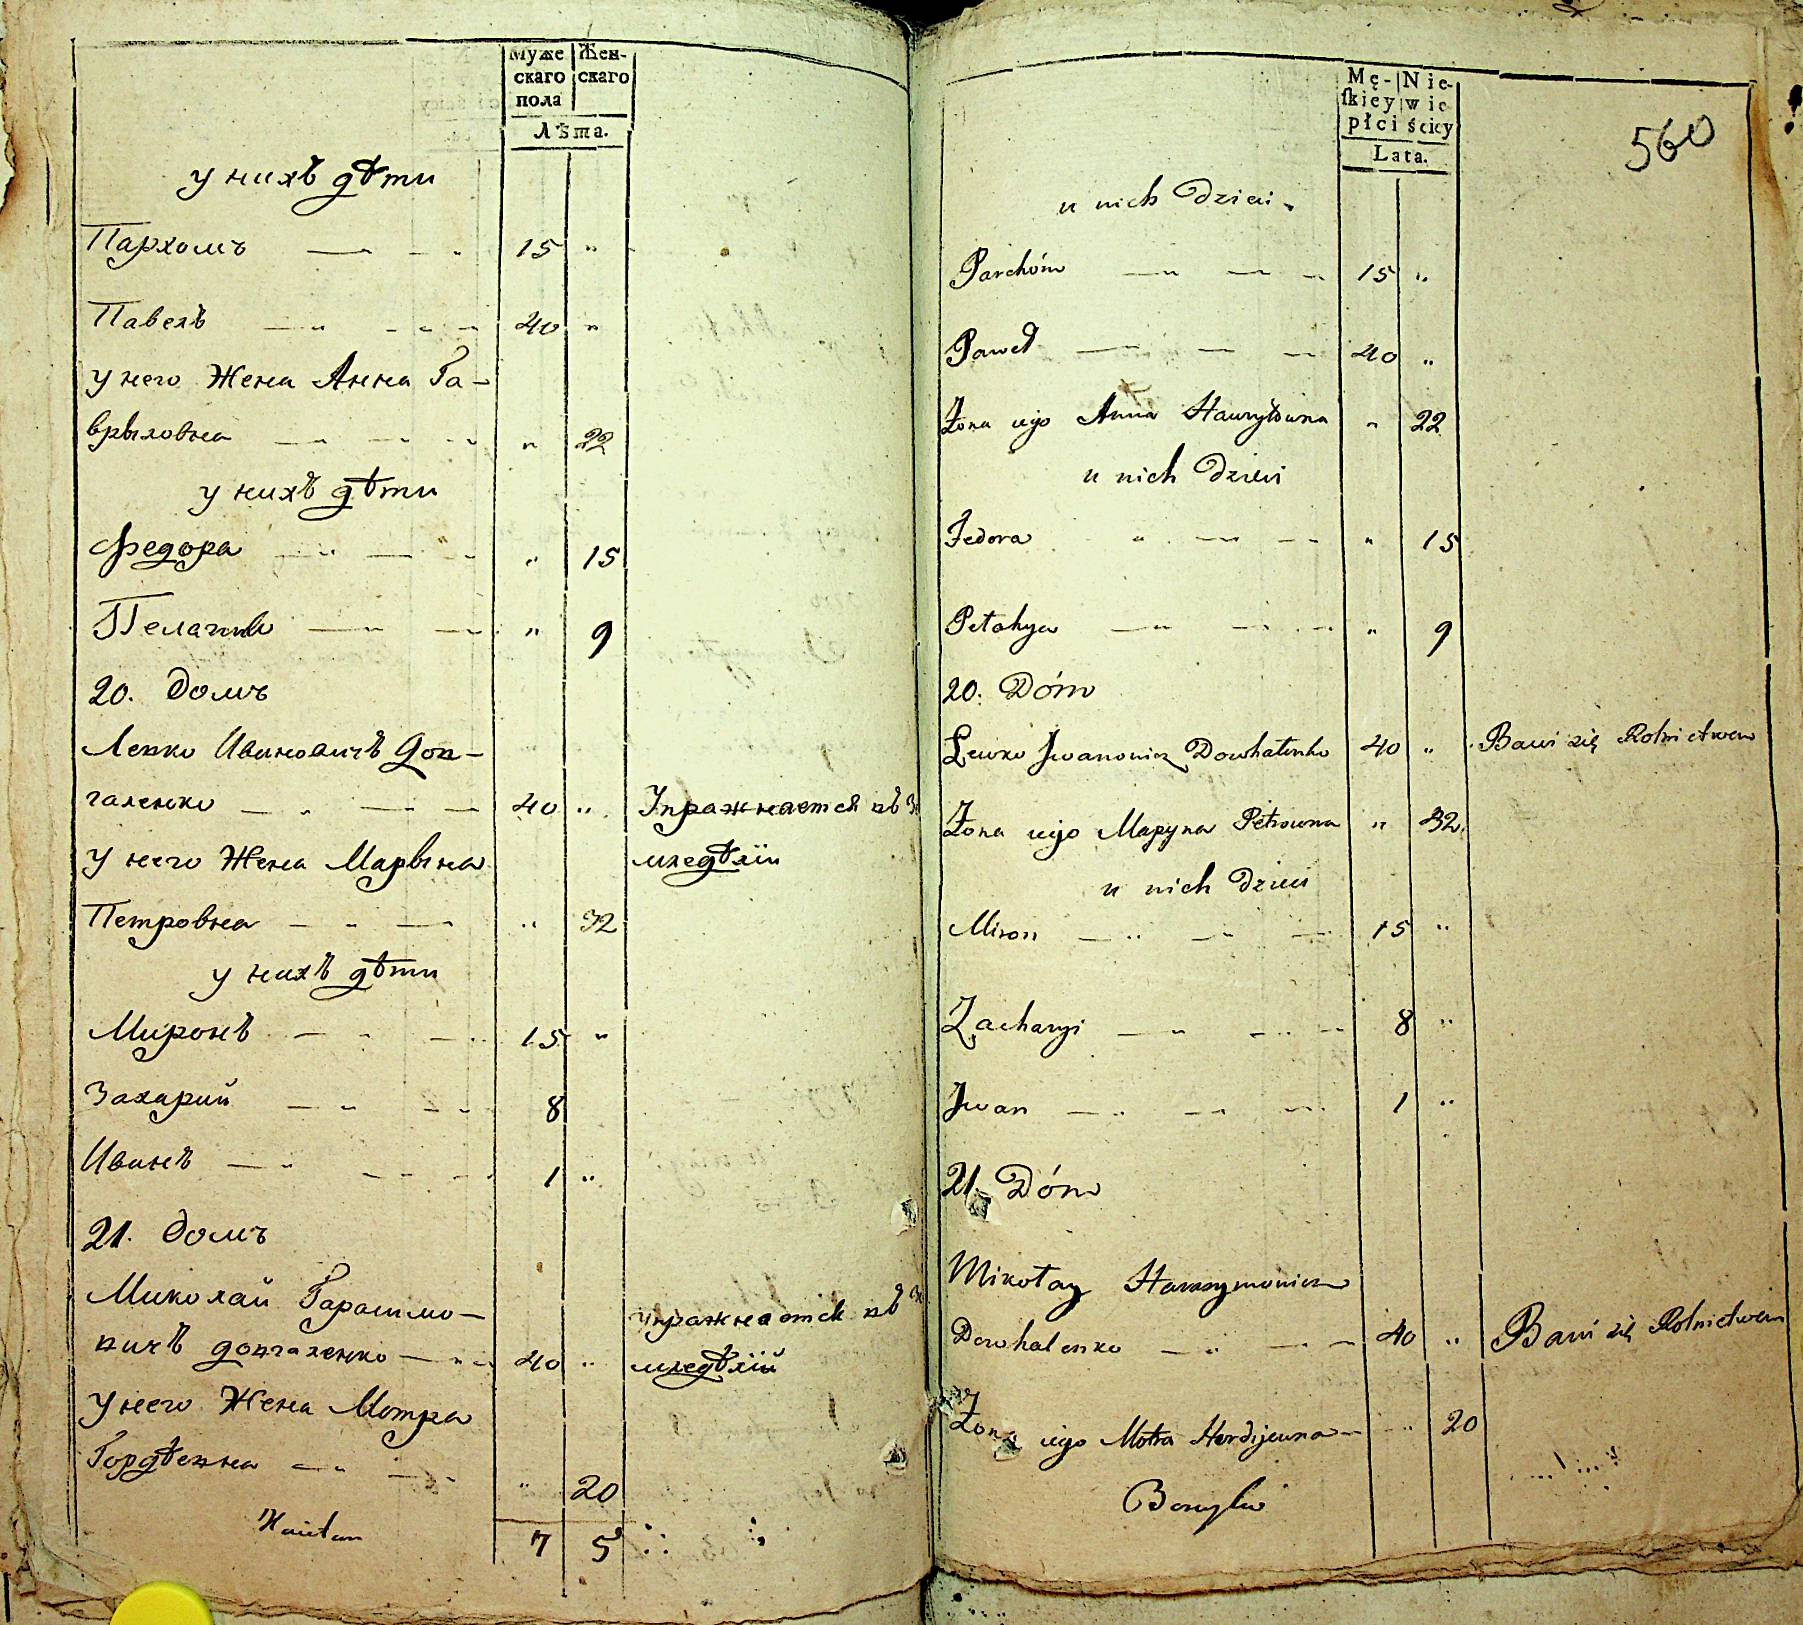 Муже Жен-
скаго скаго
пола
Лѣта.
у нихъ дѣти
Пархомъ 15 "
Павелъ 40 "
у него Жена Анна Га-
врыловна " 22
у нихъ дѣти
Федора " 15
Пелагия " 9
20. Домъ
Левко Ивановичъ Дов-
галенко 40 " Упражняется въ З
у него Жена Марына млѣдѣлiи
Петровна " 32
у нихъ дѣти
Миронъ 15 "
Захарий 8
Иванъ 1 "
21. Домъ
Миколай Гарасимо-
вичъ довгаленко 40 " упражняется въ З
у него Жена Мотра мледѣлiй
Гордѣевна " 20
Kaietan 7 5
Mę- Nie-
ſkiey wie
płci ściey
Lata.
560
u nich Dzieci
Parchóm 15 "
Paweł 40 "
Żona iego Anna Hawryłowna " 22
u nich Dzieci
Fedora " 15
Pełahya " 9
20. Dóm
Lewko Jwanowicz Dowhalenko 40 " Bawi się Rolnictwem
Żona iego Maryna Petrowna " 32
u nich Dzieci
Miron 15 "
Zacharyi 8 "
Jwan 1 "
21. Dóm
Mikołay Harasymowicz
Dowhalenko 40 " Bawi się Rolnictwem
Żona iego Motra Hordijewna " 20